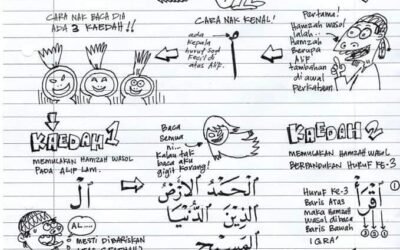 CARA NAK BACA DIA
ADA 3 KAEDAH!!
CARA NAK KENAL!
ada
kepala
huruf Sod
kecil di
atas Alif.
Pertama!
Hamzah wasol
ialah..
Hamzah
Berupa
ALIF
tambahan
di awal
Perkataan
KAEDAH 1
MEMULAKAN HAMZAH WASOL
PADA ALIF LAM.
ٱلْ
AL....
MESTI DIBARISKAN
Baca
Semua
ni..
Kalau tak
baca aku
gigit korang!
ٱلْحَمْدُ ٱلْأَرْضُ
ٱلَّذِينَ ٱلدُّنْيَا
ٱلْمَسِيحُ
KAEDAH 2
MEMULAKAN HAMZAH WASOL
BERPANDUKAN HURUF KE-3
Huruf KE-3
Baris Atas
maka Hamzah
wasol dibaca
Baris Bawah
IQRA'
ٱقْرَأْ
3 2 1